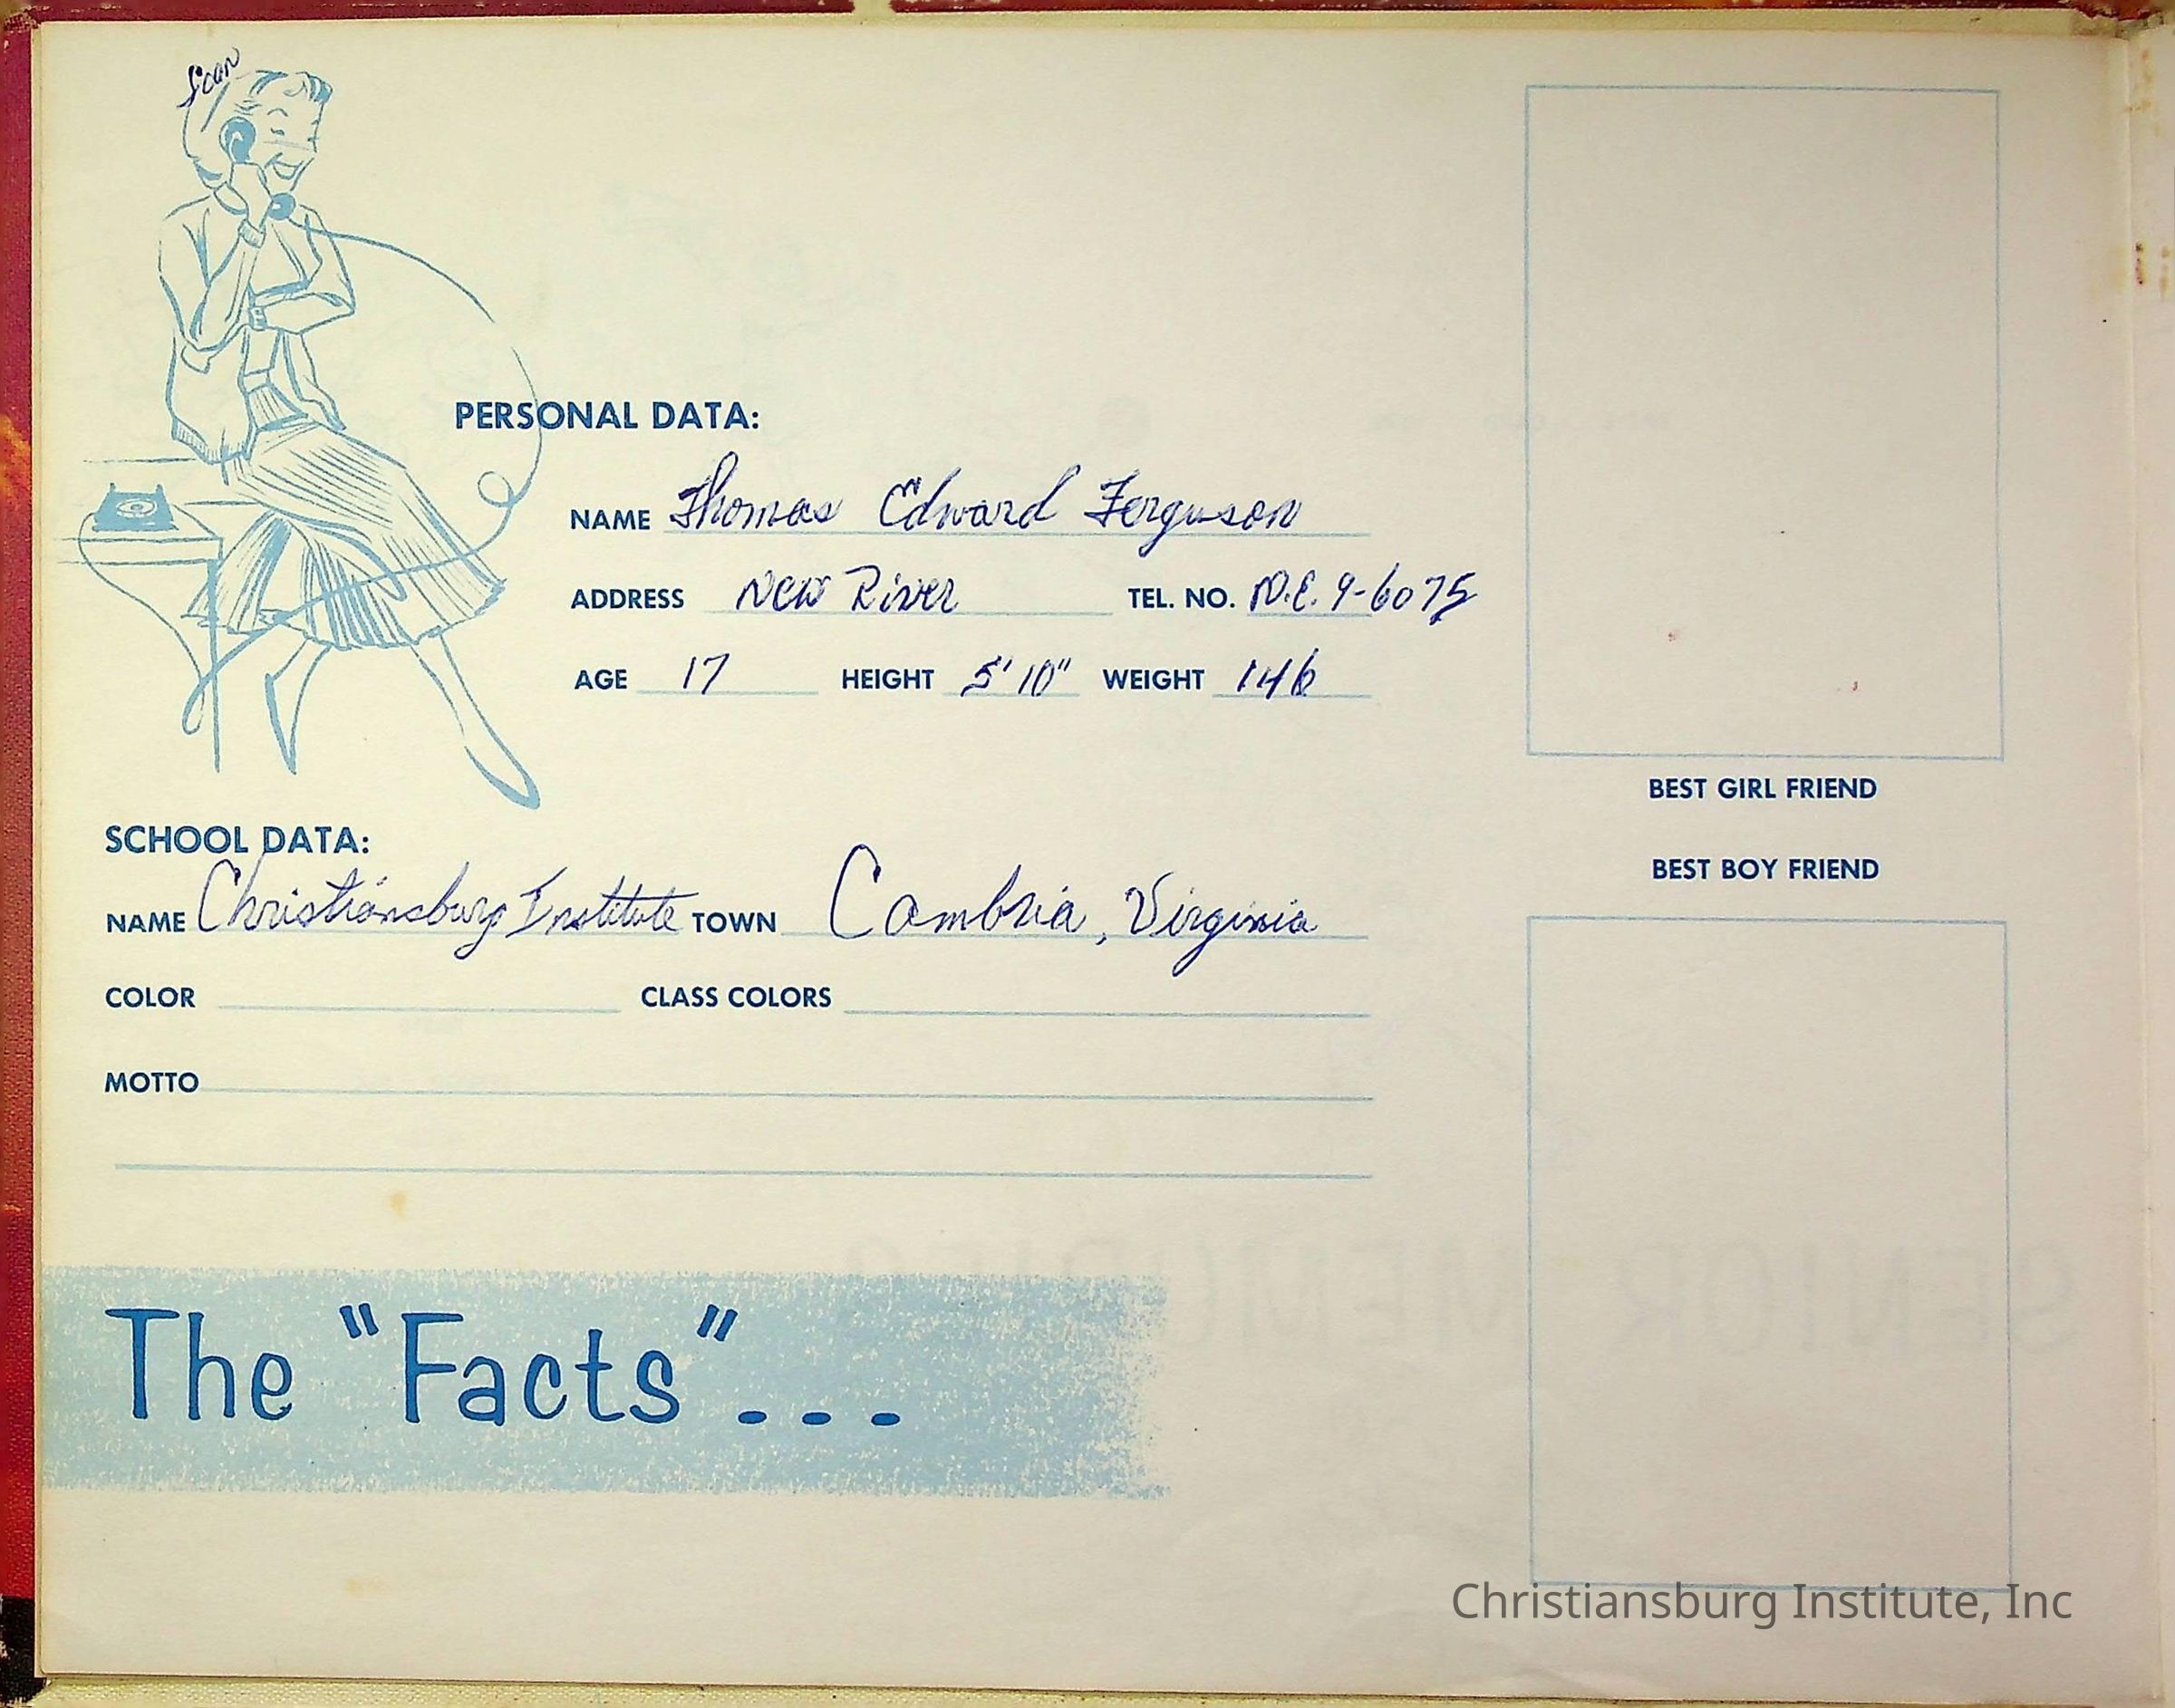 PERSONAL DATA:
NAME Thomas Edward Ferguson
ADDRESS New River TEL. NO. N.E. 9-6075
AGE 17 HEIGHT 5'10" WEIGHT 146
BEST GIRL FRIEND
SCHOOL DATA:
BEST BOY FRIEND
NAME Christiansburg Institute TOWN Cambria, Virginia
COLOR CLASS COLORS
MOTTO
The "Facts"...
Christiansburg Institute, Inc